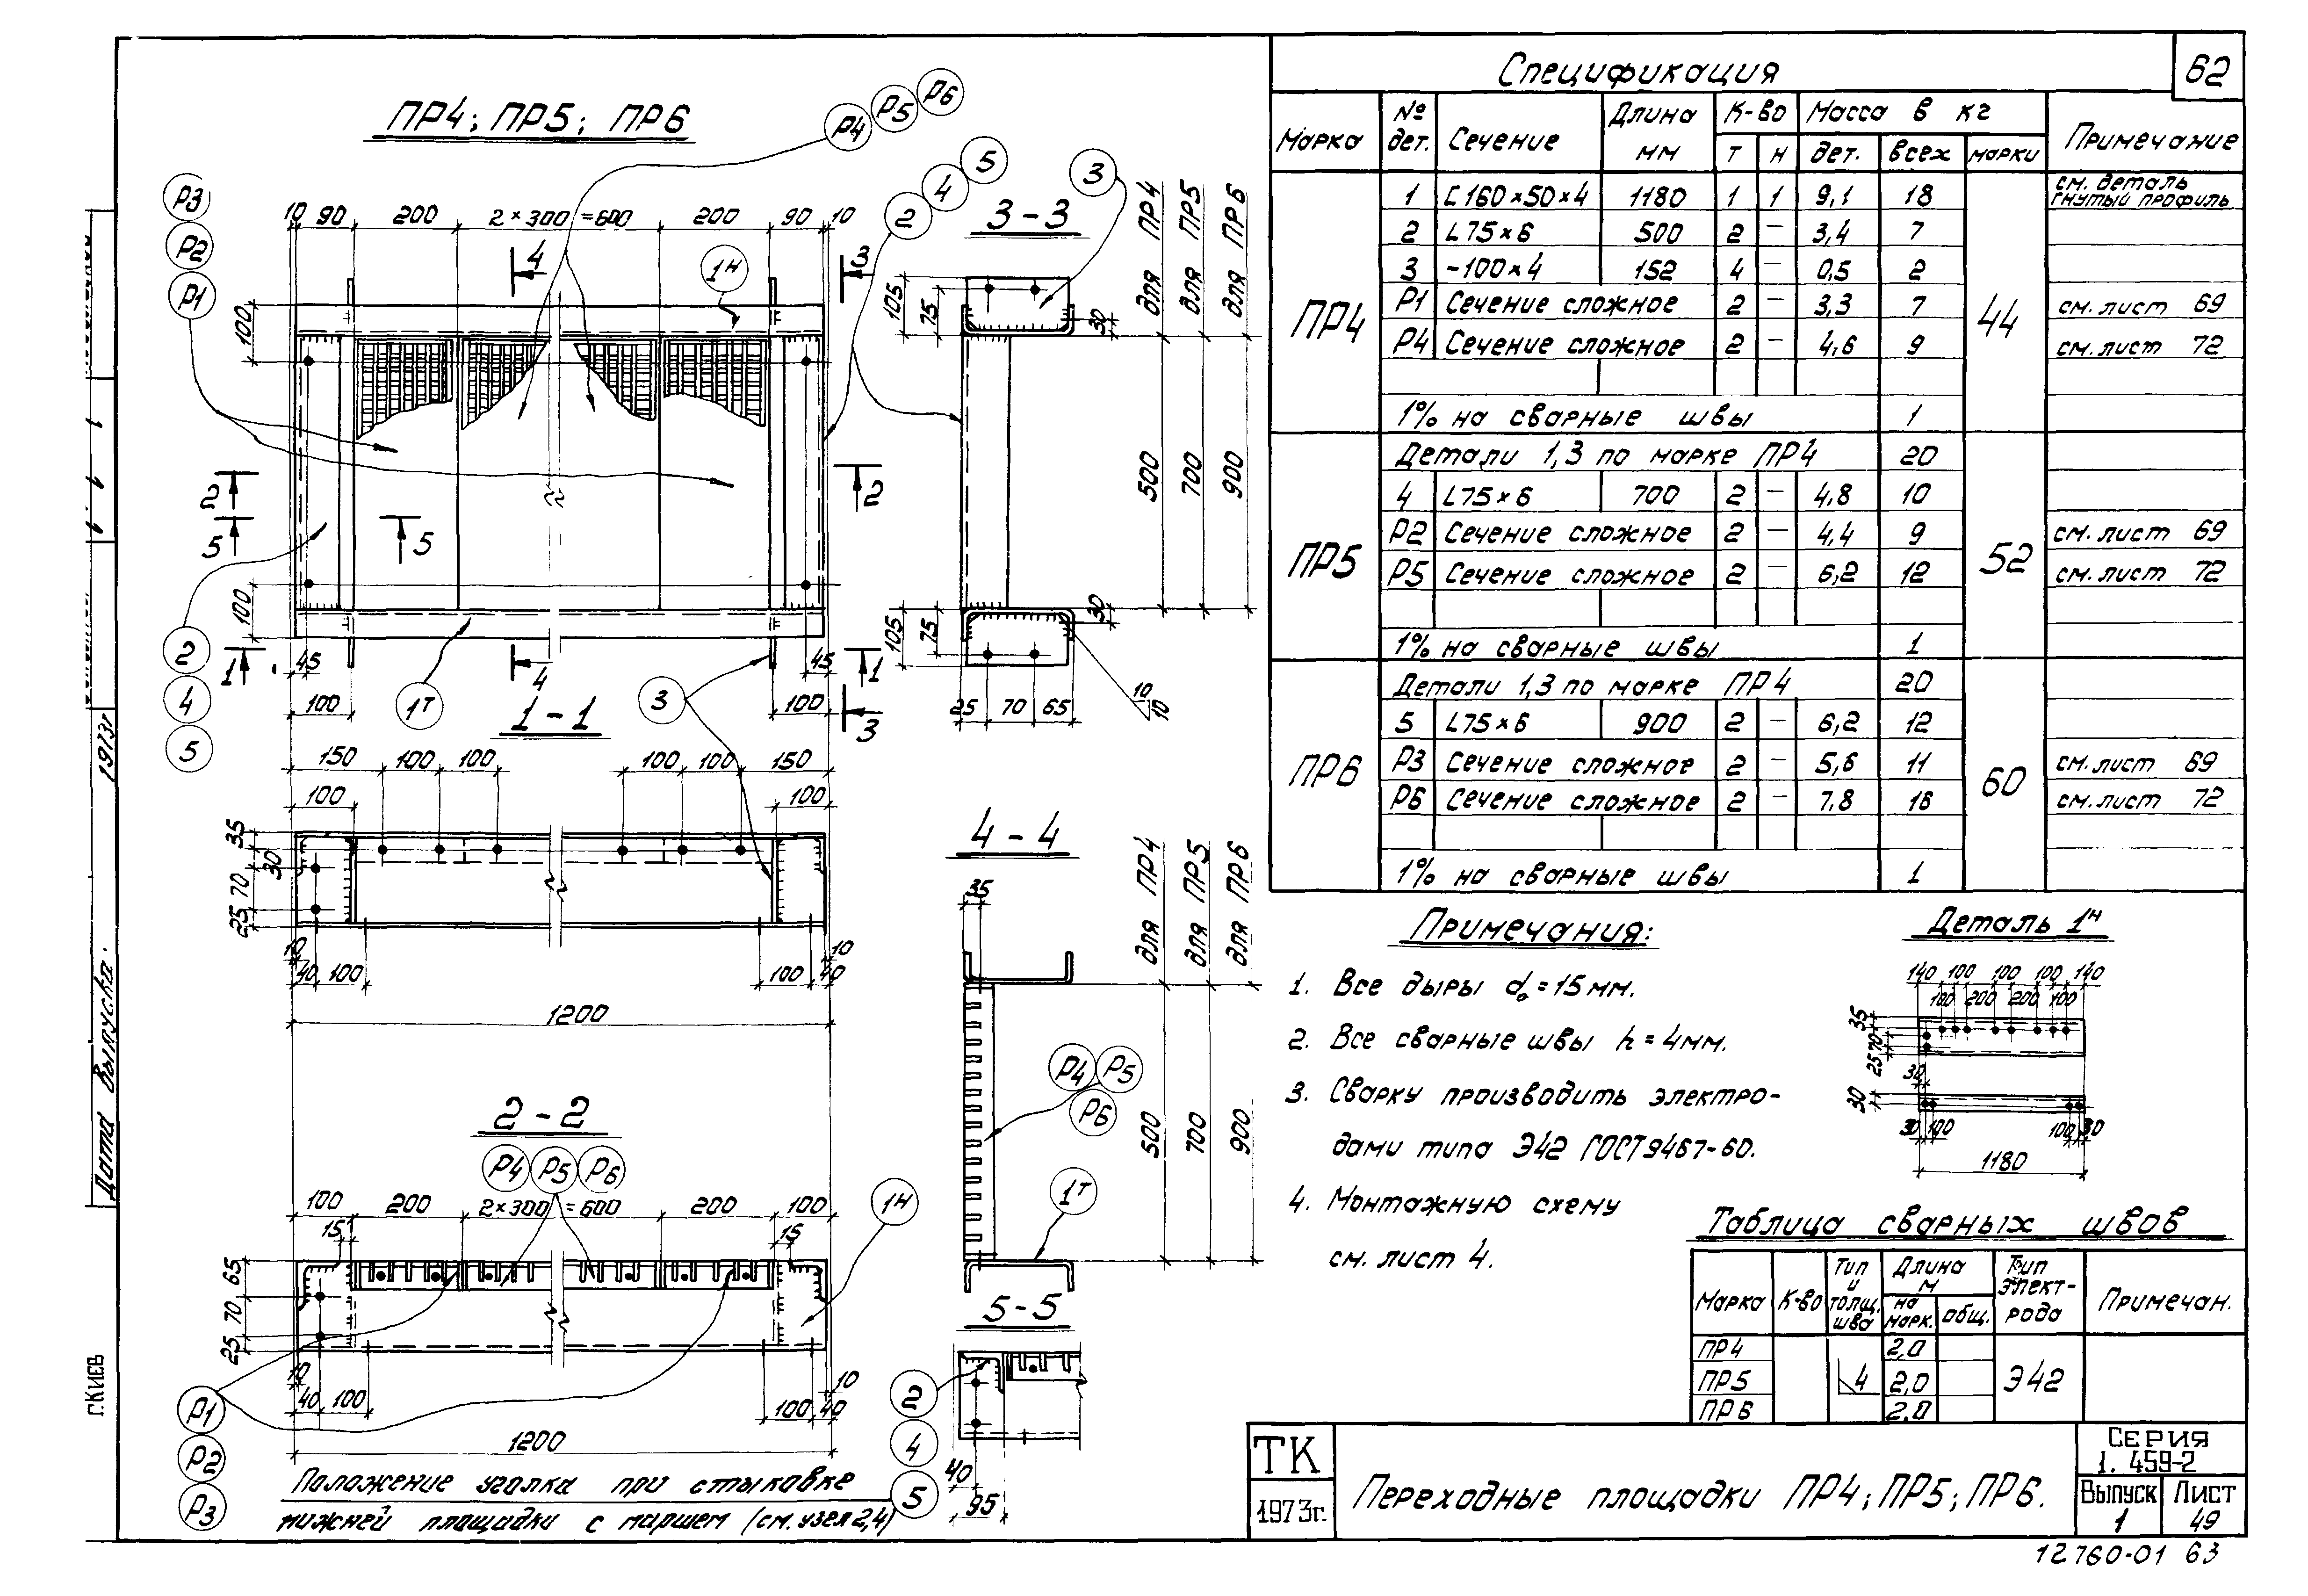 ПР4; ПР5; ПР6
Р4 Р5 Р6
Р3
Р2
Р1
10 90 200 2×300=600 200 90 10
2 4 5
4 3
1н
100
2 2
5 5
100
2
4
5
1 1
45 45
4
100 100
1т 3
3
3-3
3
для ПР4
для ПР5
для ПР6
105 75 30
500 700 900
105 75 30
25 70 65
10
10
1-1
150 100 100 100 100 150
100 100
35
30
70
25
10 10
40 100 100 40
1200
2-2
Р4 Р5 Р6
1н
100 200 2×300=600 200 100
15 15
65
70
25
10 10
40 100 100 40
1200
Р1
Р2
Р3
Положение уголка при стыковке
нижней площадки с маршем (см. узел 2,4)
4-4
35
для ПР4
для ПР5
для ПР6
Р4 Р5
Р6
500 700 900
1т
5-5
2
4
5
40
95
Спецификация
62
Марка № дет. Сечение Длина мм К-во Масса в кг Примечание
т н дет. всех марки
ПР4 1 [160×50×4 1180 1 1 9,1 18 44 см. деталь гнутый профиль
2 L75×6 500 2 – 3,4 7
3 -100×4 152 4 – 0,5 2
Р1 Сечение сложное 2 – 3,3 7 см. лист 69
Р4 Сечение сложное 2 – 4,6 9 см. лист 72
1% на сварные швы 1
ПР5 Детали 1,3 по марке ПР4 20 52
4 L75×6 700 2 – 4,8 10
Р2 Сечение сложное 2 – 4,4 9 см. лист 69
Р5 Сечение сложное 2 – 6,2 12 см. лист 72
1% на сварные швы 1
ПР6 Детали 1,3 по марке ПР4 20 60
5 L75×6 900 2 – 6,2 12
Р3 Сечение сложное 2 – 5,6 11 см. лист 69
Р6 Сечение сложное 2 – 7,8 16 см. лист 72
1% на сварные швы 1
Примечания:
1. Все дыры d₀=15мм.
2. Все сварные швы h=4мм.
3. Сварку производить электро-
дами типа Э42 ГОСТ9467-60.
4. Монтажную схему
см. лист 4.
Деталь 1н
140 100 100 100 140
100 200 200 100
35
70
25
30
30
30 100 100 30
1180
Таблица сварных швов
Марка К-во Тип и толщ. шва Длина м Тип элект-рода Примечан.
на марк. общ.
ПР4 2,0
ПР5 4 2,0 Э42
ПР6 2,0
ТК
1973г.
Переходные площадки ПР4; ПР5; ПР6.
Серия
1.459-2
Выпуск
1
Лист
49
12760-01 63
1973г
Дата выпуска.
г.Киев